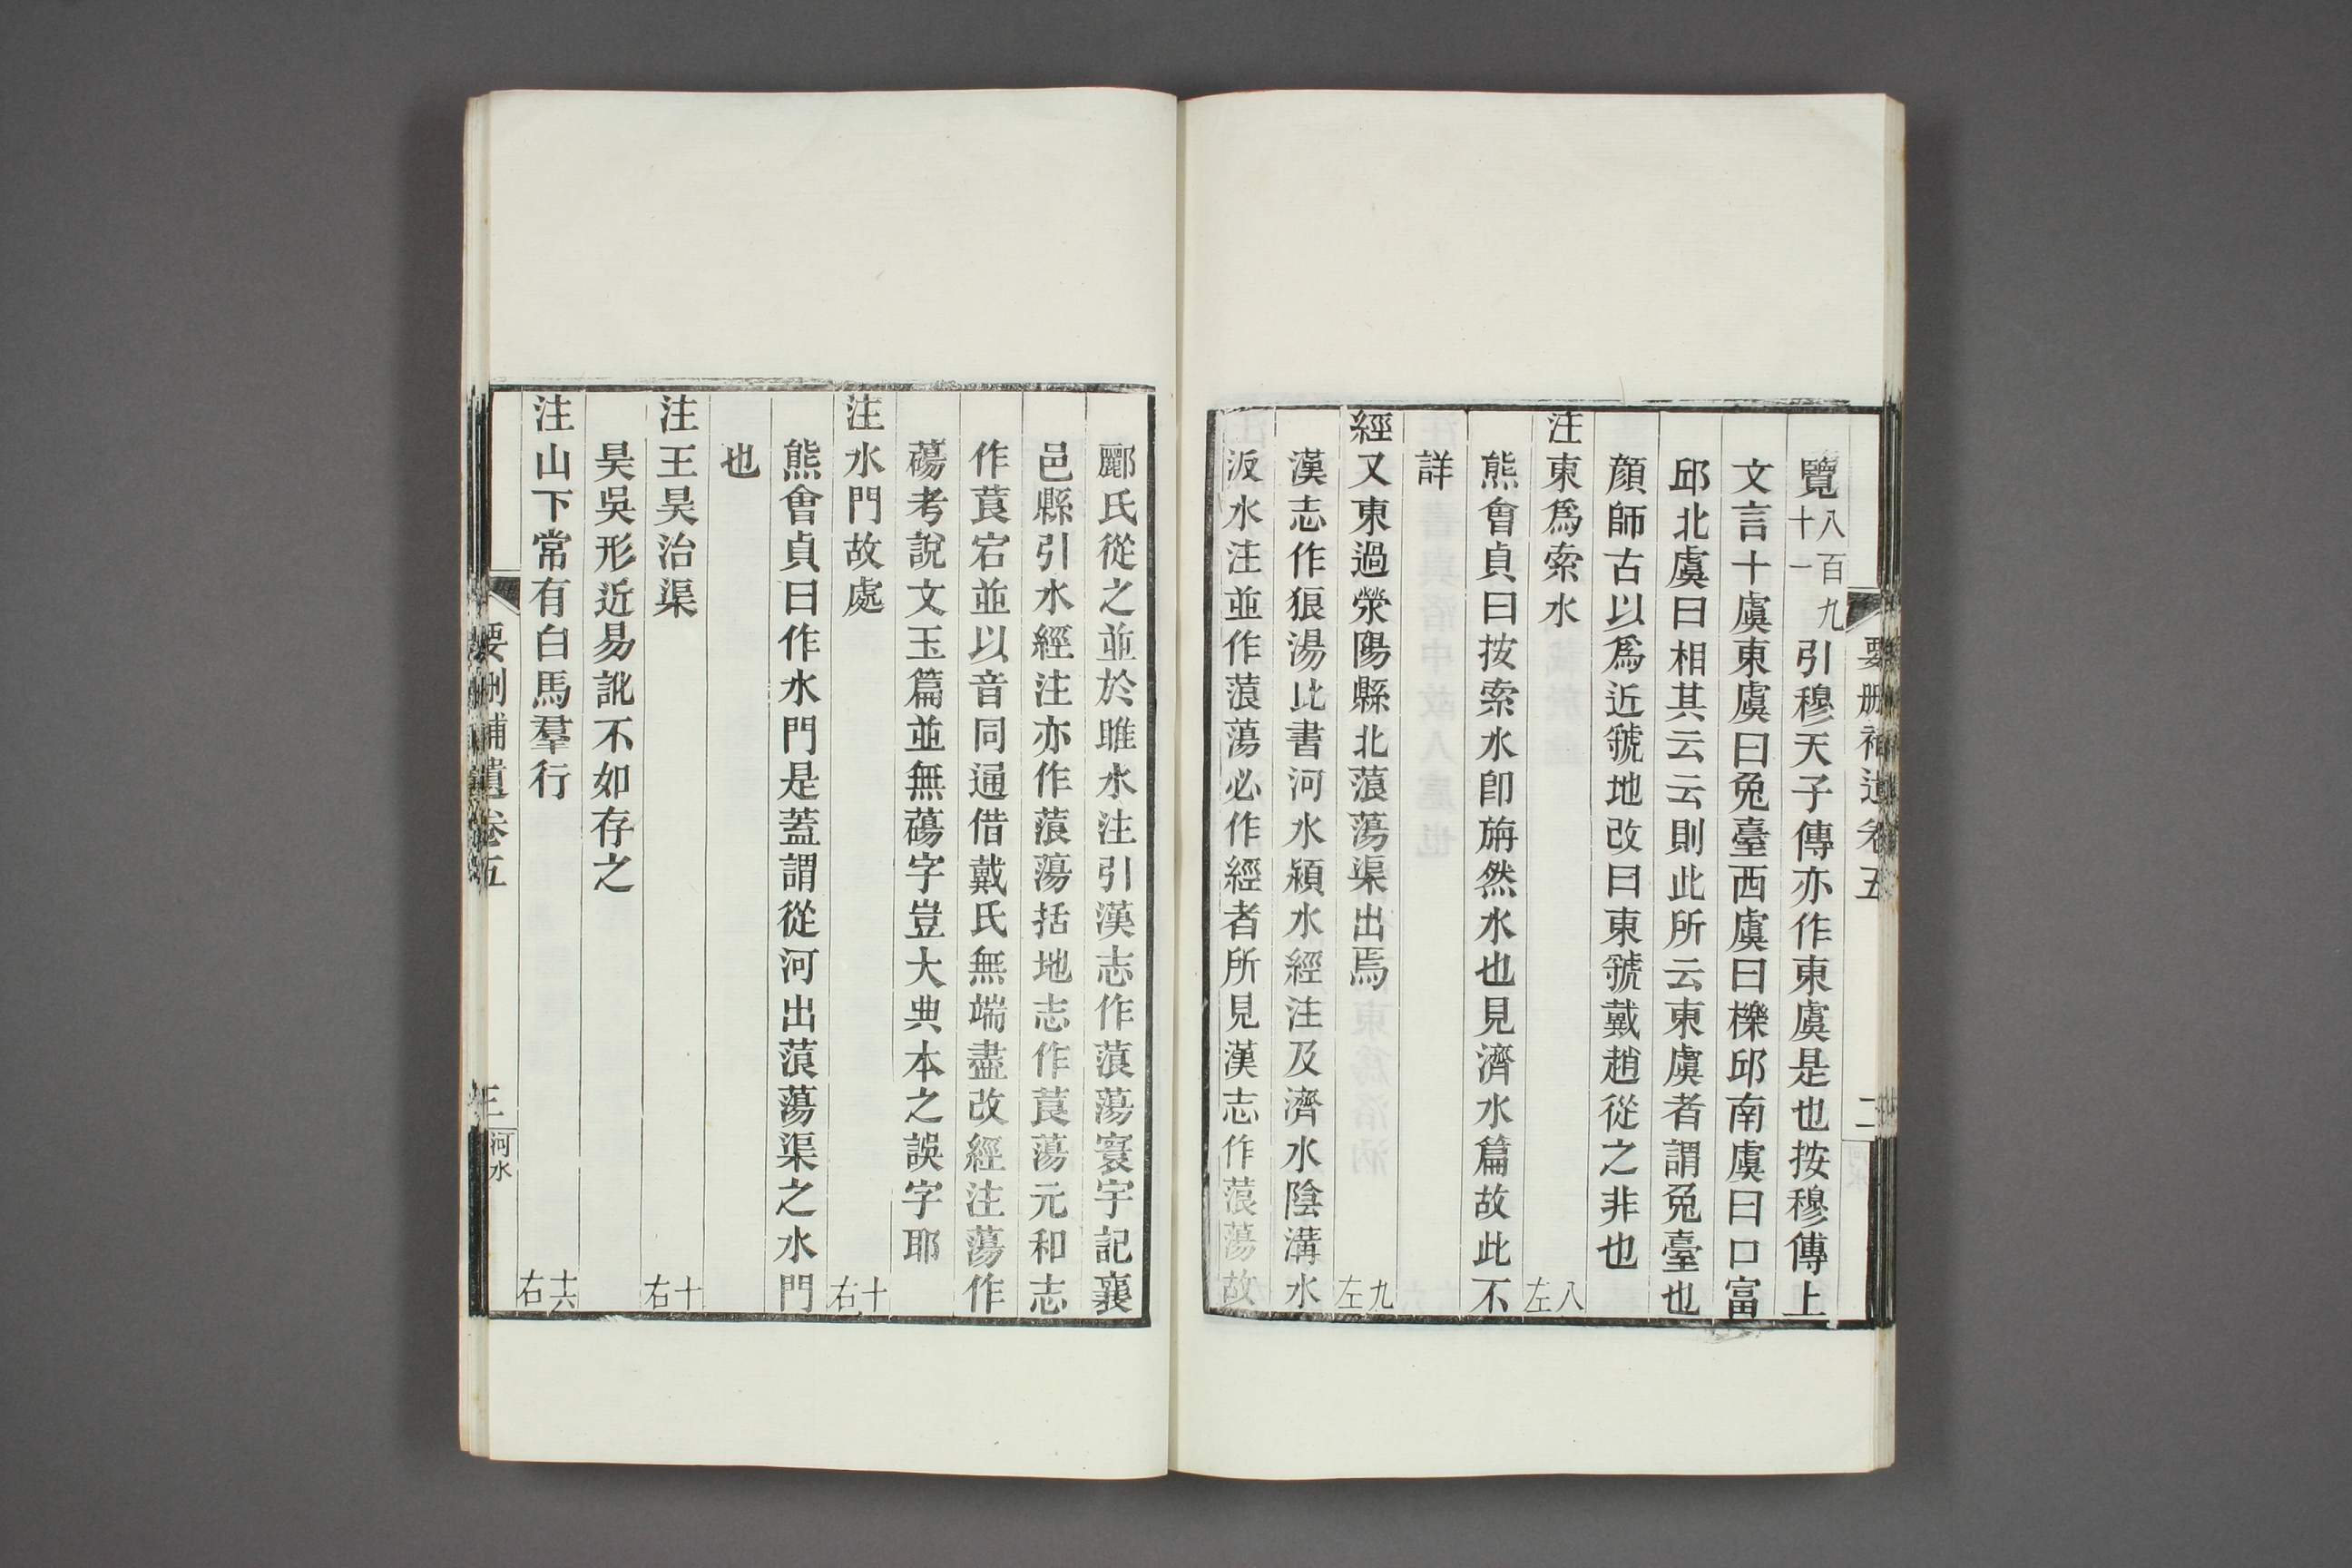 要刪補遺卷五
二
覽八百九十一引穆天子傳亦作東虞是也按穆傳上
文言十虞東虞曰兔臺西虞曰櫟邱南虞曰口富
邱北虞曰相其云云則此所云東虞者謂兔臺也
顏師古以爲近虢地改曰東虢戴趙從之非也
注東爲索水 八左
熊會貞曰按索水卽旃然水也見濟水篇故此不
詳
經又東過滎陽縣北蒗蕩渠出焉 九左
漢志作狼湯此書河水潁水經注及濟水陰溝水
汳水注並作蒗蕩必作經者所見漢志作蒗蕩故
酈氏從之並於睢水注引漢志作蒗蕩寰宇記襄
邑縣引水經注亦作蒗蕩括地志作莨蕩元和志
作莨宕並以音同通借戴氏無端盡改經注蕩作
蘯考說文玉篇並無蘯字豈大典本之誤字耶
注水門故處 十右
熊會貞曰作水門是蓋謂從河出蒗蕩渠之水門
也
注王吴治渠 十右
昊吳形近易訛不如存之
注山下常有白馬羣行 十六右
要刪補遺卷五
三
河水